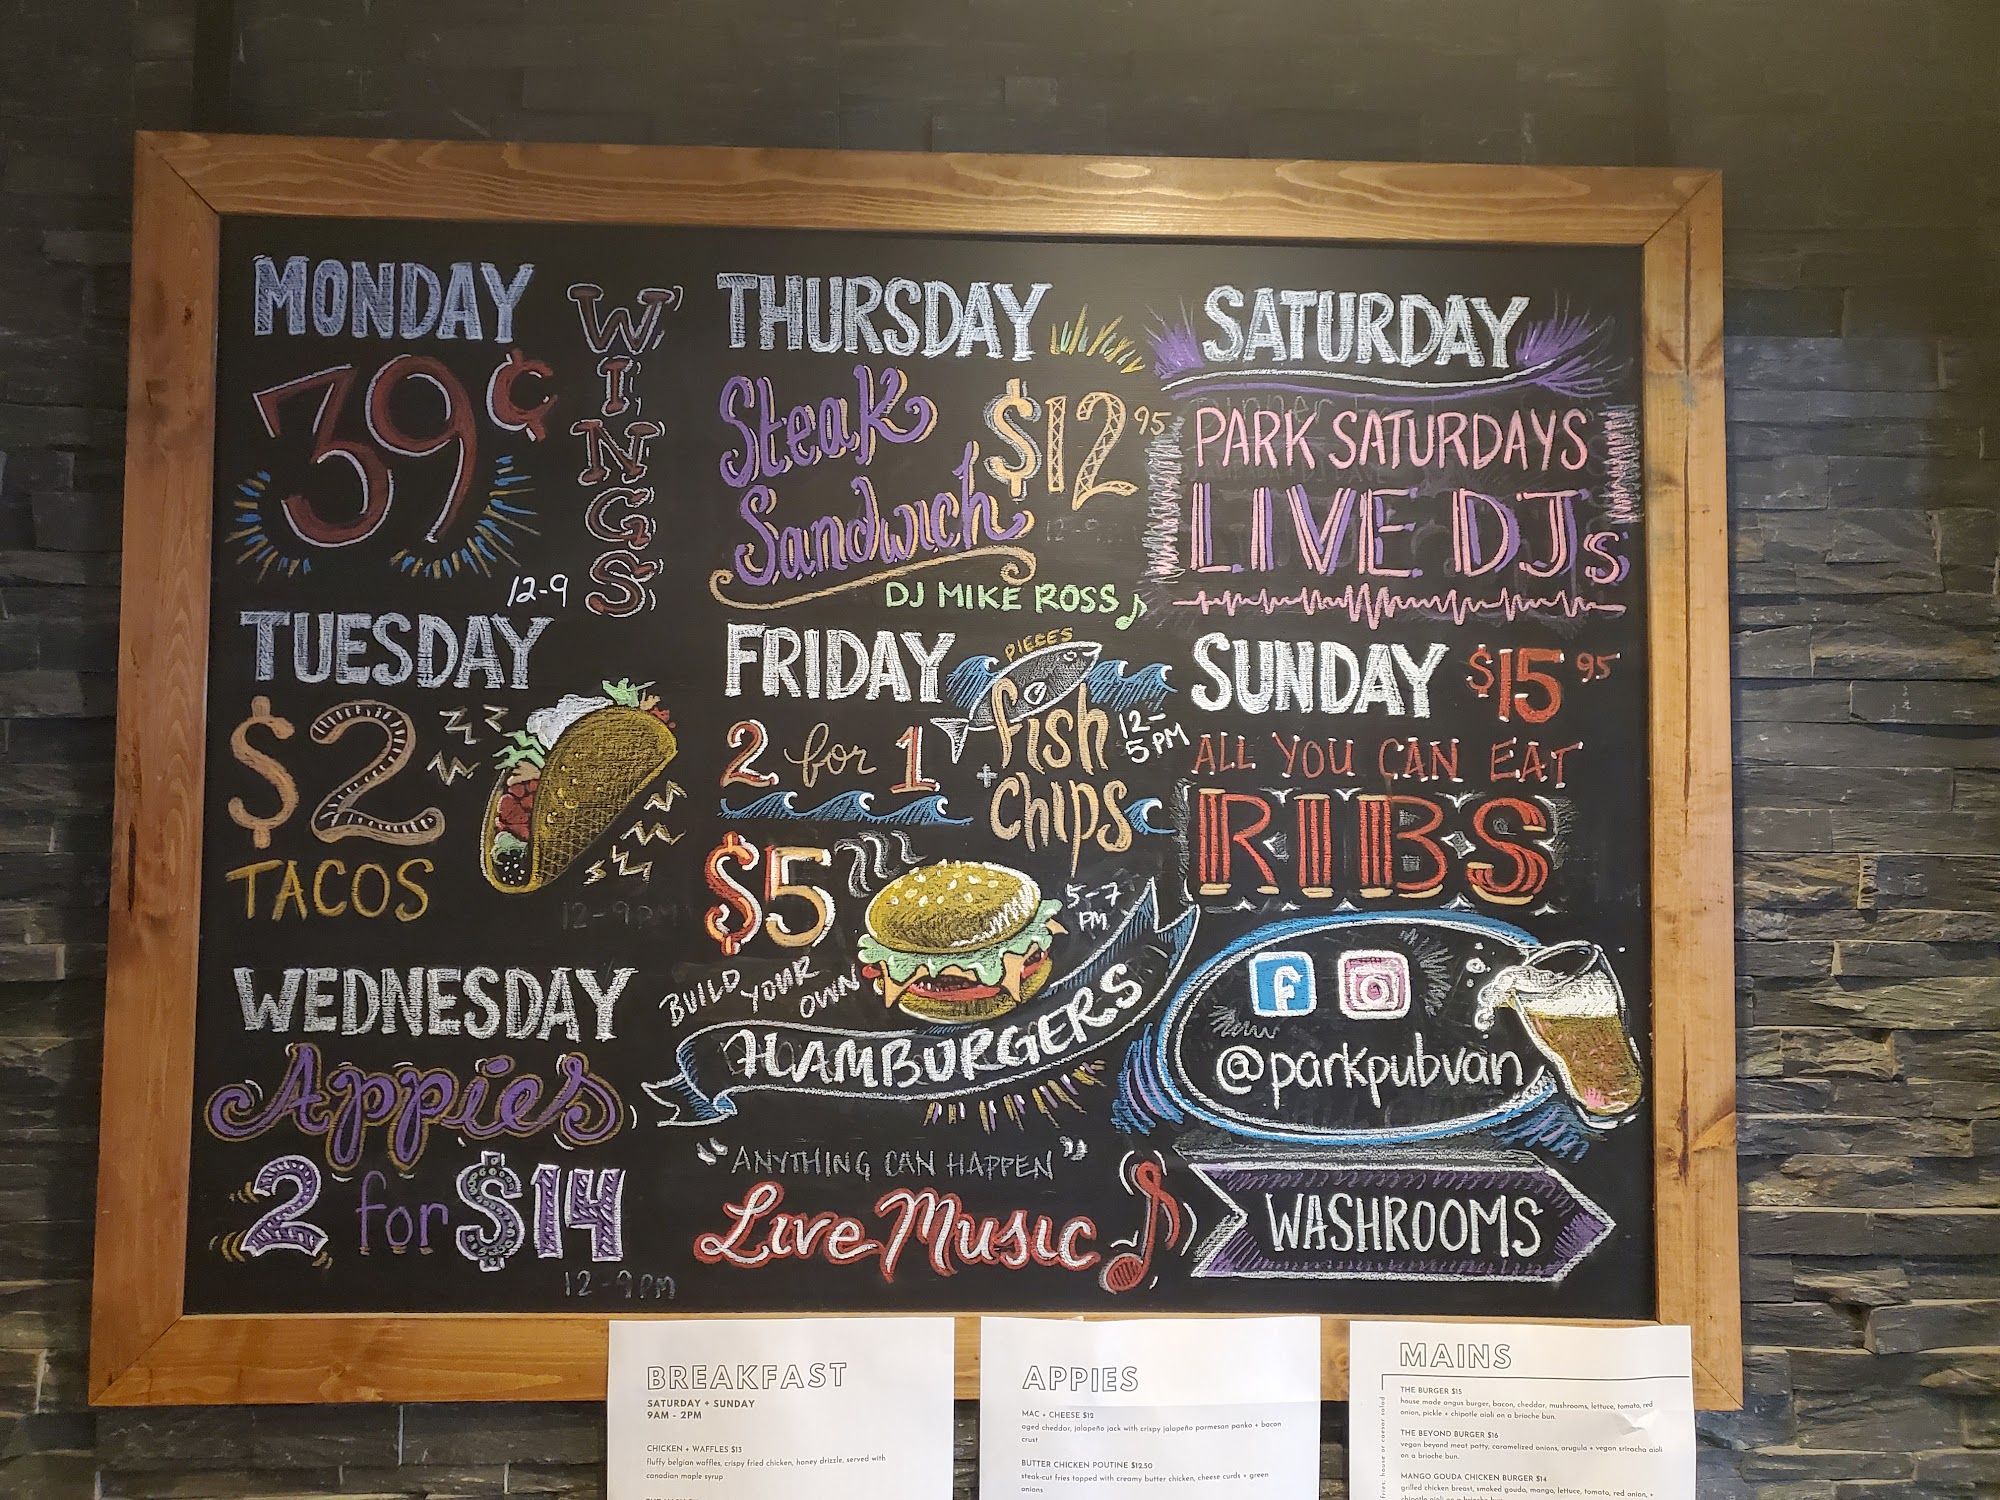 MONDAY
39¢
WINGS
12-9
TUESDAY
$2
TACOS
12-9PM
WEDNESDAY
Appies
2 for $14
12-9PM
THURSDAY
Steak
Sandwich
$12 95
12-9
DJ MIKE ROSS
FRIDAY
2 for 1
PIECES
fish
+ chips
12-
5PM
$5
BUILD YOUR OWN
5-7
PM
HAMBURGERS
"ANYTHING CAN HAPPEN"
Live Music
SATURDAY
PARK SATURDAYS
LIVE DJs
SUNDAY $15 95
ALL YOU CAN EAT
RIBS
f
@parkpubvan
WASHROOMS
BREAKFAST
SATURDAY + SUNDAY
9AM - 2PM
CHICKEN + WAFFLES $13
fluffy belgian waffles, crispy fried chicken, honey drizzle, served with
canadian maple syrup
APPIES
MAC + CHEESE $12
aged cheddar, jalapeño jack with crispy jalapeño parmesan panko + bacon
crust
BUTTER CHICKEN POUTINE $12.50
steak-cut fries topped with creamy butter chicken, cheese curds + green
onions
MAINS
fries, house or caesar salad
THE BURGER $15
house made angus burger, bacon, cheddar, mushrooms, lettuce, tomato, red
onion, pickle + chipotle aioli on a brioche bun.
THE BEYOND BURGER $16
vegan beyond meat patty, caramelized onions, arugula + vegan sriracha aioli
on a brioche bun.
MANGO GOUDA CHICKEN BURGER $14
grilled chicken breast, smoked gouda, mango, lettuce, tomato, red onion, +
chipotle aioli on a brioche bun.